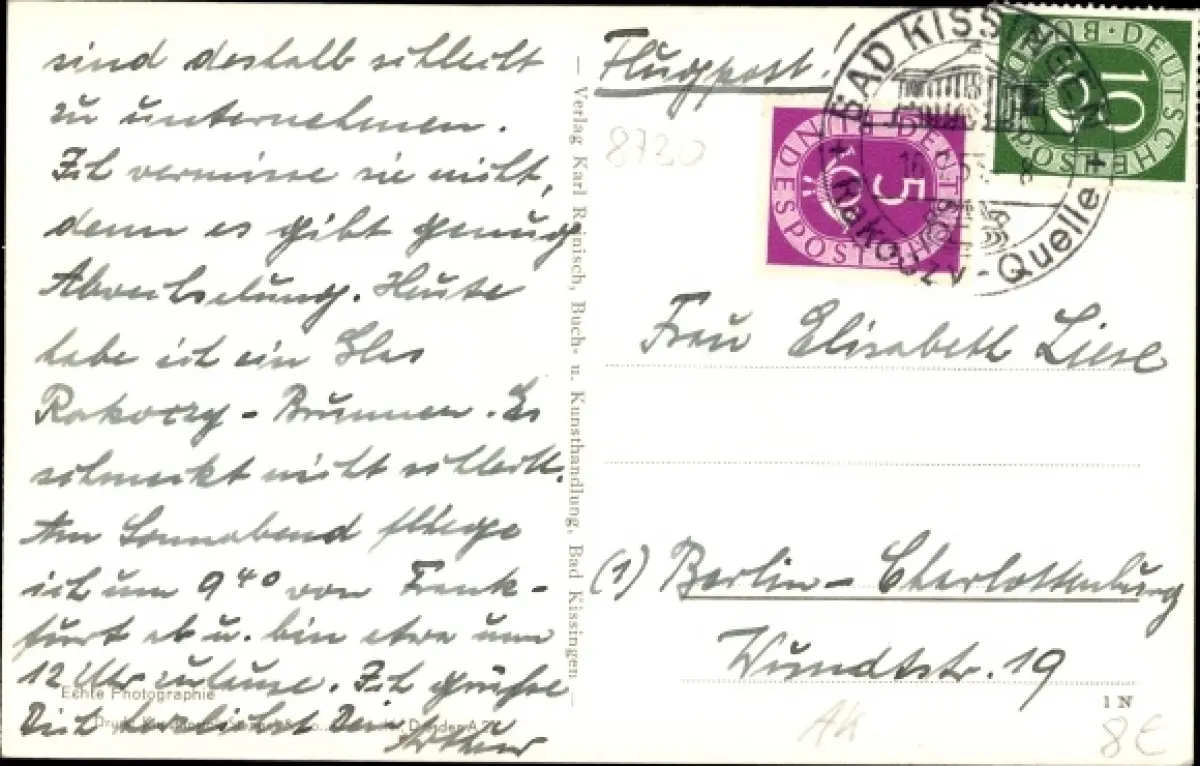 sind deshalb schlecht
zu unternehmen.
Ich vermisse sie nicht,
denn es gibt genug
Abwechselung. Heute
habe ich ein Glas
Rakoczy - Brunnen. Es
schmeckt nicht schlecht.
Am Sonnabend fliege
ich um 9⁴⁰ von Frank-
furt ab u. bin etwa um
12 Uhr zuhause. Ich grüsse
Dich herzlichst Dein
Arthur
Echte Photographie
Dresden A.
— Verlag Karl Reinisch, Buch- u. Kunsthandlung, Bad Kissingen. —
Flugpost!
8730
BAD KISSINGEN
Rakoczy-Quelle
DEUTSCHE BUNDESPOST
10
DEUTSCHE BUNDESPOST
5
Frau Elisabeth Liese
(1) Berlin - Charlottenburg
Wundtstr. 19
1 N
Ak
8€